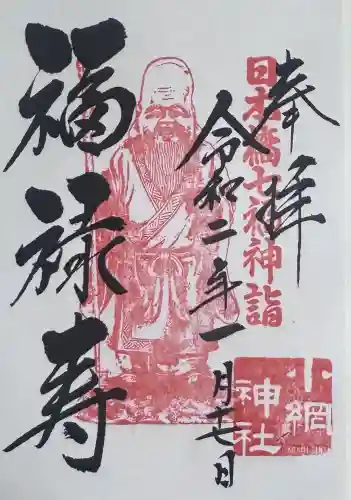 奉拝
日本橋七福神詣
令和二年一月十七日
福禄寿
小網
神社